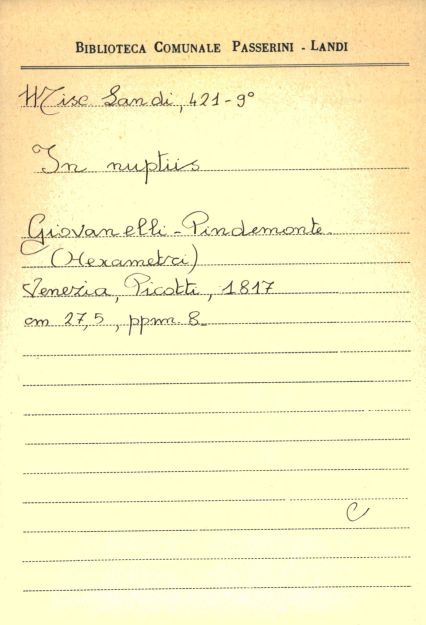 BIBLIOTECA COMUNALE PASSERINI - LANDI
Misc Landi, 421-9°
In nuptiis
Giovanelli-Pindemonte.
(Hexametri)
Venezia, Picotti, 1817
cm 27,5, ppnn. 8_
C